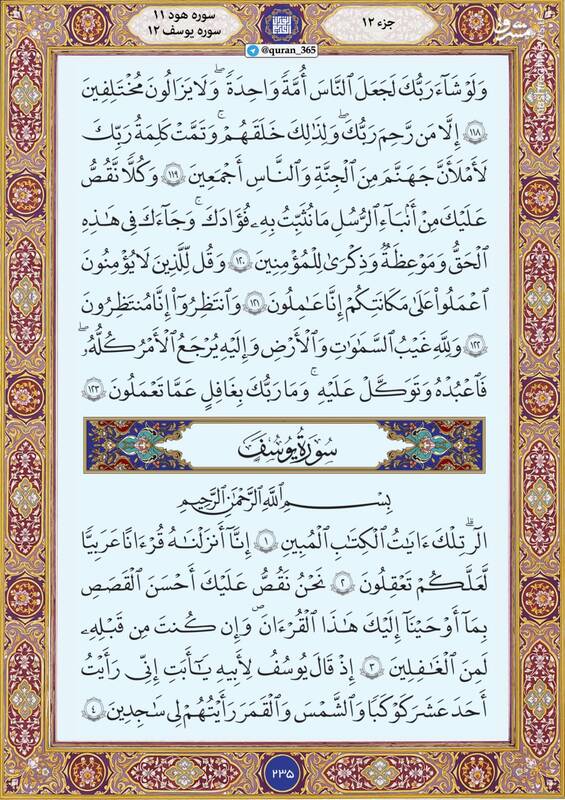 جزء ۱۲
سوره هود ۱۱
سوره یوسف ۱۲
@quran_365
مشرق
وَلَوْ شَآءَ رَبُّكَ لَجَعَلَ ٱلنَّاسَ أُمَّةً وَٰحِدَةً ۖ وَلَا يَزَالُونَ مُخْتَلِفِينَ
﴿١١٨﴾ إِلَّا مَن رَّحِمَ رَبُّكَ ۚ وَلِذَٰلِكَ خَلَقَهُمْ ۗ وَتَمَّتْ كَلِمَةُ رَبِّكَ
لَأَمْلَأَنَّ جَهَنَّمَ مِنَ ٱلْجِنَّةِ وَٱلنَّاسِ أَجْمَعِينَ ﴿١١٩﴾ وَكُلًّا نَّقُصُّ
عَلَيْكَ مِنْ أَنۢبَآءِ ٱلرُّسُلِ مَا نُثَبِّتُ بِهِۦ فُؤَادَكَ ۚ وَجَآءَكَ فِى هَٰذِهِ
ٱلْحَقُّ وَمَوْعِظَةٌ وَذِكْرَىٰ لِلْمُؤْمِنِينَ ﴿١٢٠﴾ وَقُل لِّلَّذِينَ لَا يُؤْمِنُونَ
ٱعْمَلُوا۟ عَلَىٰ مَكَانَتِكُمْ إِنَّا عَٰمِلُونَ ﴿١٢١﴾ وَٱنتَظِرُوٓا۟ إِنَّا مُنتَظِرُونَ
﴿١٢٢﴾ وَلِلَّهِ غَيْبُ ٱلسَّمَٰوَٰتِ وَٱلْأَرْضِ وَإِلَيْهِ يُرْجَعُ ٱلْأَمْرُ كُلُّهُۥ
فَٱعْبُدْهُ وَتَوَكَّلْ عَلَيْهِ ۚ وَمَا رَبُّكَ بِغَٰفِلٍ عَمَّا تَعْمَلُونَ ﴿١٢٣﴾
سُورَةُ يُوسُفَ
بِسْمِ ٱللَّهِ ٱلرَّحْمَٰنِ ٱلرَّحِيمِ
الٓر ۚ تِلْكَ ءَايَٰتُ ٱلْكِتَٰبِ ٱلْمُبِينِ ﴿١﴾ إِنَّآ أَنزَلْنَٰهُ قُرْءَٰنًا عَرَبِيًّا
لَّعَلَّكُمْ تَعْقِلُونَ ﴿٢﴾ نَحْنُ نَقُصُّ عَلَيْكَ أَحْسَنَ ٱلْقَصَصِ
بِمَآ أَوْحَيْنَآ إِلَيْكَ هَٰذَا ٱلْقُرْءَانَ وَإِن كُنتَ مِن قَبْلِهِۦ
لَمِنَ ٱلْغَٰفِلِينَ ﴿٣﴾ إِذْ قَالَ يُوسُفُ لِأَبِيهِ يَٰٓأَبَتِ إِنِّى رَأَيْتُ
أَحَدَ عَشَرَ كَوْكَبًا وَٱلشَّمْسَ وَٱلْقَمَرَ رَأَيْتُهُمْ لِى سَٰجِدِينَ ﴿٤﴾
٢٣٥